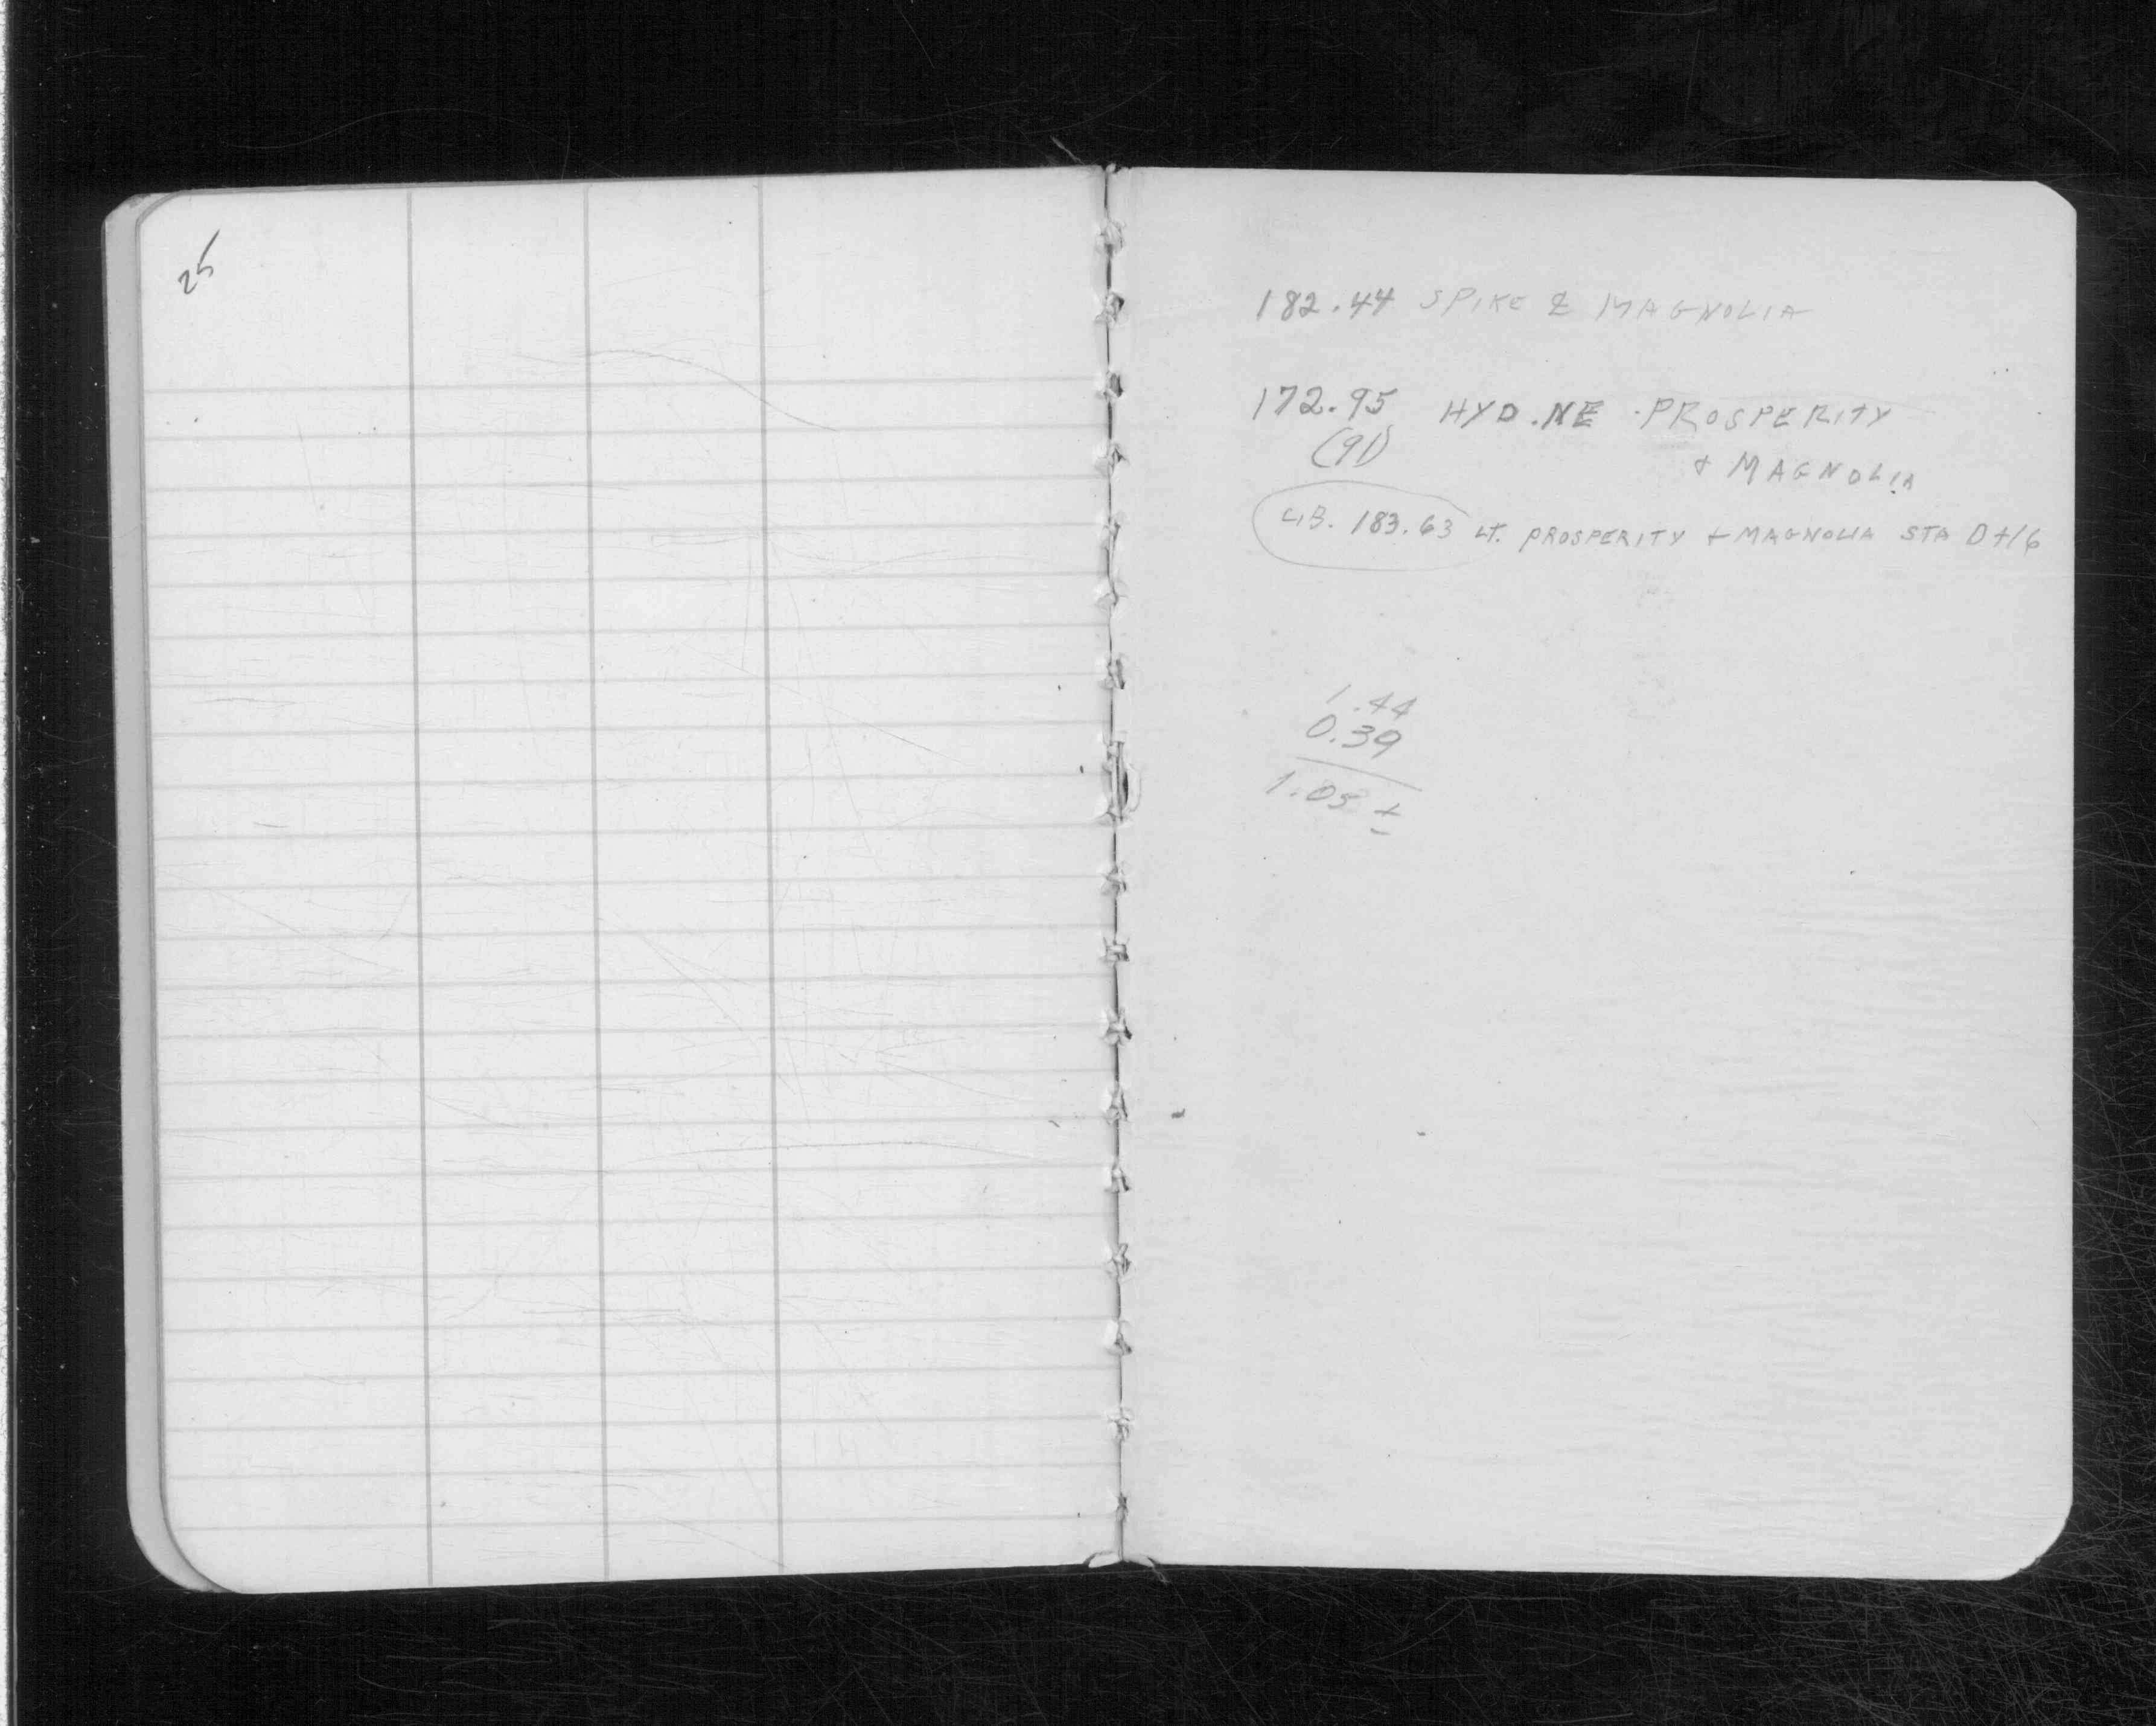 25
182.44 SPIKE & MAGNOLIA
172.95 HYD. NE PROSPERITY
(91) + MAGNOLIA
C.B. 183.63 LT. PROSPERITY + MAGNOLIA STA 0+16
1.44
0.39
1.05 ±